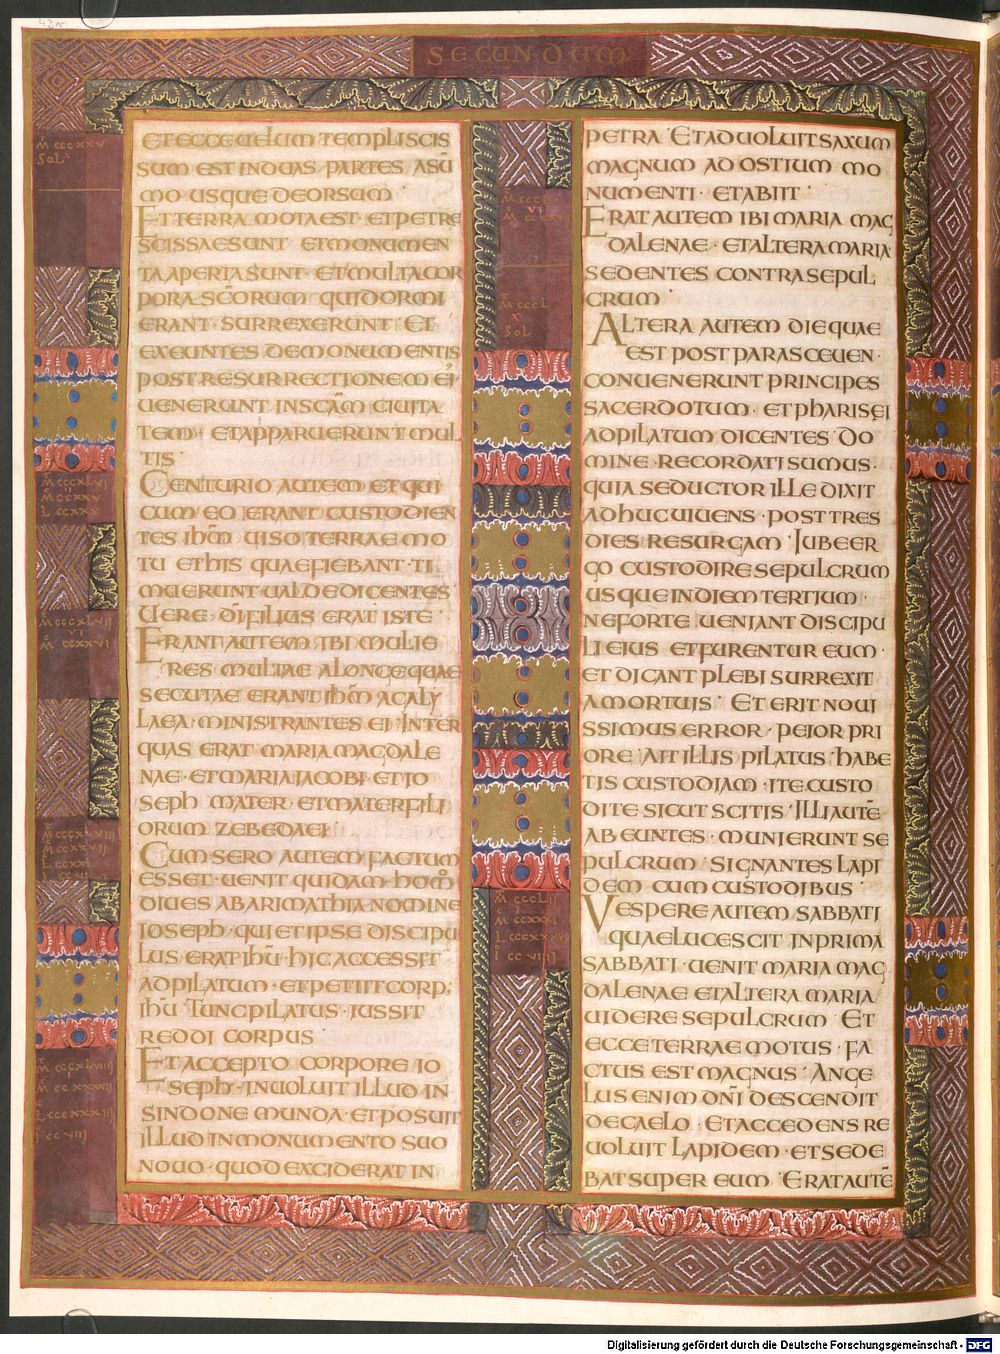 SECUNDUM
ET ECCE UELUM TEMPLI SCIS
SUM EST IN DUAS PARTES A SŪ
MO USQUE DEORSUM ·
ET TERRA MOTA EST · ET PETRE
SCISSAE SUNT · ET MONUMEN
TA APERTA SUNT · ET MULTA COR
PORA SC̄ORUM QUI DORMI
ERANT · SURREXERUNT · ET
EXEUNTES DE MONUMENTIS
POST RESURRECTIONEM EI'
UENERUNT IN SCĀM CIUITA
TEM · ET APPARUERUNT MUL
TIS ·
CENTURIO AUTEM ET QUI
CUM EO ERANT CUSTODIEN
TES IHM̄ UISO TERRAE MO
TU ET HIS QUAE FIEBANT · TI
MUERUNT UALDE DICENTES ·
UERE · DĪ FILIUS ERAT ISTE ·
ERANT AUTEM IBI MULIE
RES MULTAE A LONGE QUAE
SECUTAE ERANT IHM̄ A GALI
LAEA · MINISTRANTES EI · INTER
QUAS ERAT MARIA MAGDALE
NAE · ET MARIA IACOBI · ET IO
SEPH MATER · ET MATER FILI
ORUM ZEBEDAEI ·
CUM SERO AUTEM FACTUM
ESSET · UENIT QUIDAM HOM̄
DIUES AB ARIMATHIA NOMINE
IOSEPH · QUI ET IPSE DISCIPU
LUS ERAT IHŪ · HIC ACCESSIT
AD PILATUM · ET PETIIT CORP;
IHŪ · TUNC PILATUS · IUSSIT
REDDI CORPUS
ET ACCEPTO CORPORE IO
SEPH · INUOLUIT ILLUD IN
SINDONE MUNDA · ET POSUIT
ILLUD IN MONUMENTO SUO
NOUO · QUOD EXCIDERAT IN
PETRA · ET ADUOLUIT SAXUM
MAGNUM AD OSTIUM MO
NUMENTI · ET ABIIT ·
ERAT AUTEM IBI MARIA MAG
DALENAE · ET ALTERA MARIA
SEDENTES CONTRA SEPUL
CRUM ·
ALTERA AUTEM DIE QUAE
EST POST PARASCEUEN ·
CONUENERUNT PRINCIPES
SACERDOTUM · ET PHARISEI
AD PILATUM DICENTES · DO
MINE · RECORDATI SUMUS ·
QUIA SEDUCTOR ILLE DIXIT
ADHUC UIUENS · POST TRES
DIES RESURGAM · IUBE ER
GO CUSTODIRE SEPULCRUM
USQUE IN DIEM TERTIUM ·
NE FORTE UENIANT DISCIPU
LI EIUS ET FURENTUR EUM ·
ET DICANT PLEBI SURREXIT
A MORTUIS · ET ERIT NOUI
SSIMUS ERROR · PEIOR PRI
ORE · AIT ILLIS PILATUS · HABE
TIS CUSTODIAM · ITE CUSTO
DITE SICUT SCITIS · ILLI AUTĒ
ABEUNTES · MUNIERUNT SE
PULCRUM · SIGNANTES LAPI
DEM CUM CUSTODIBUS ·
VESPERE AUTEM SABBATI
QUAE LUCESCIT IN PRIMA
SABBATI · UENIT MARIA MAG
DALENAE ET ALTERA MARIA
UIDERE SEPULCRUM · ET
ECCE TERRAE MOTUS · FA
CTUS EST MAGNUS · ANGE
LUS ENIM DN̄I DESCENDIT
DE CAELO · ET ACCEDENS RE
UOLUIT LAPIDEM · ET SEDE
BAT SUPER EUM · ERAT AUTĒ
Digitalisierung gefördert durch die Deutsche Forschungsgemeinschaft - DFG